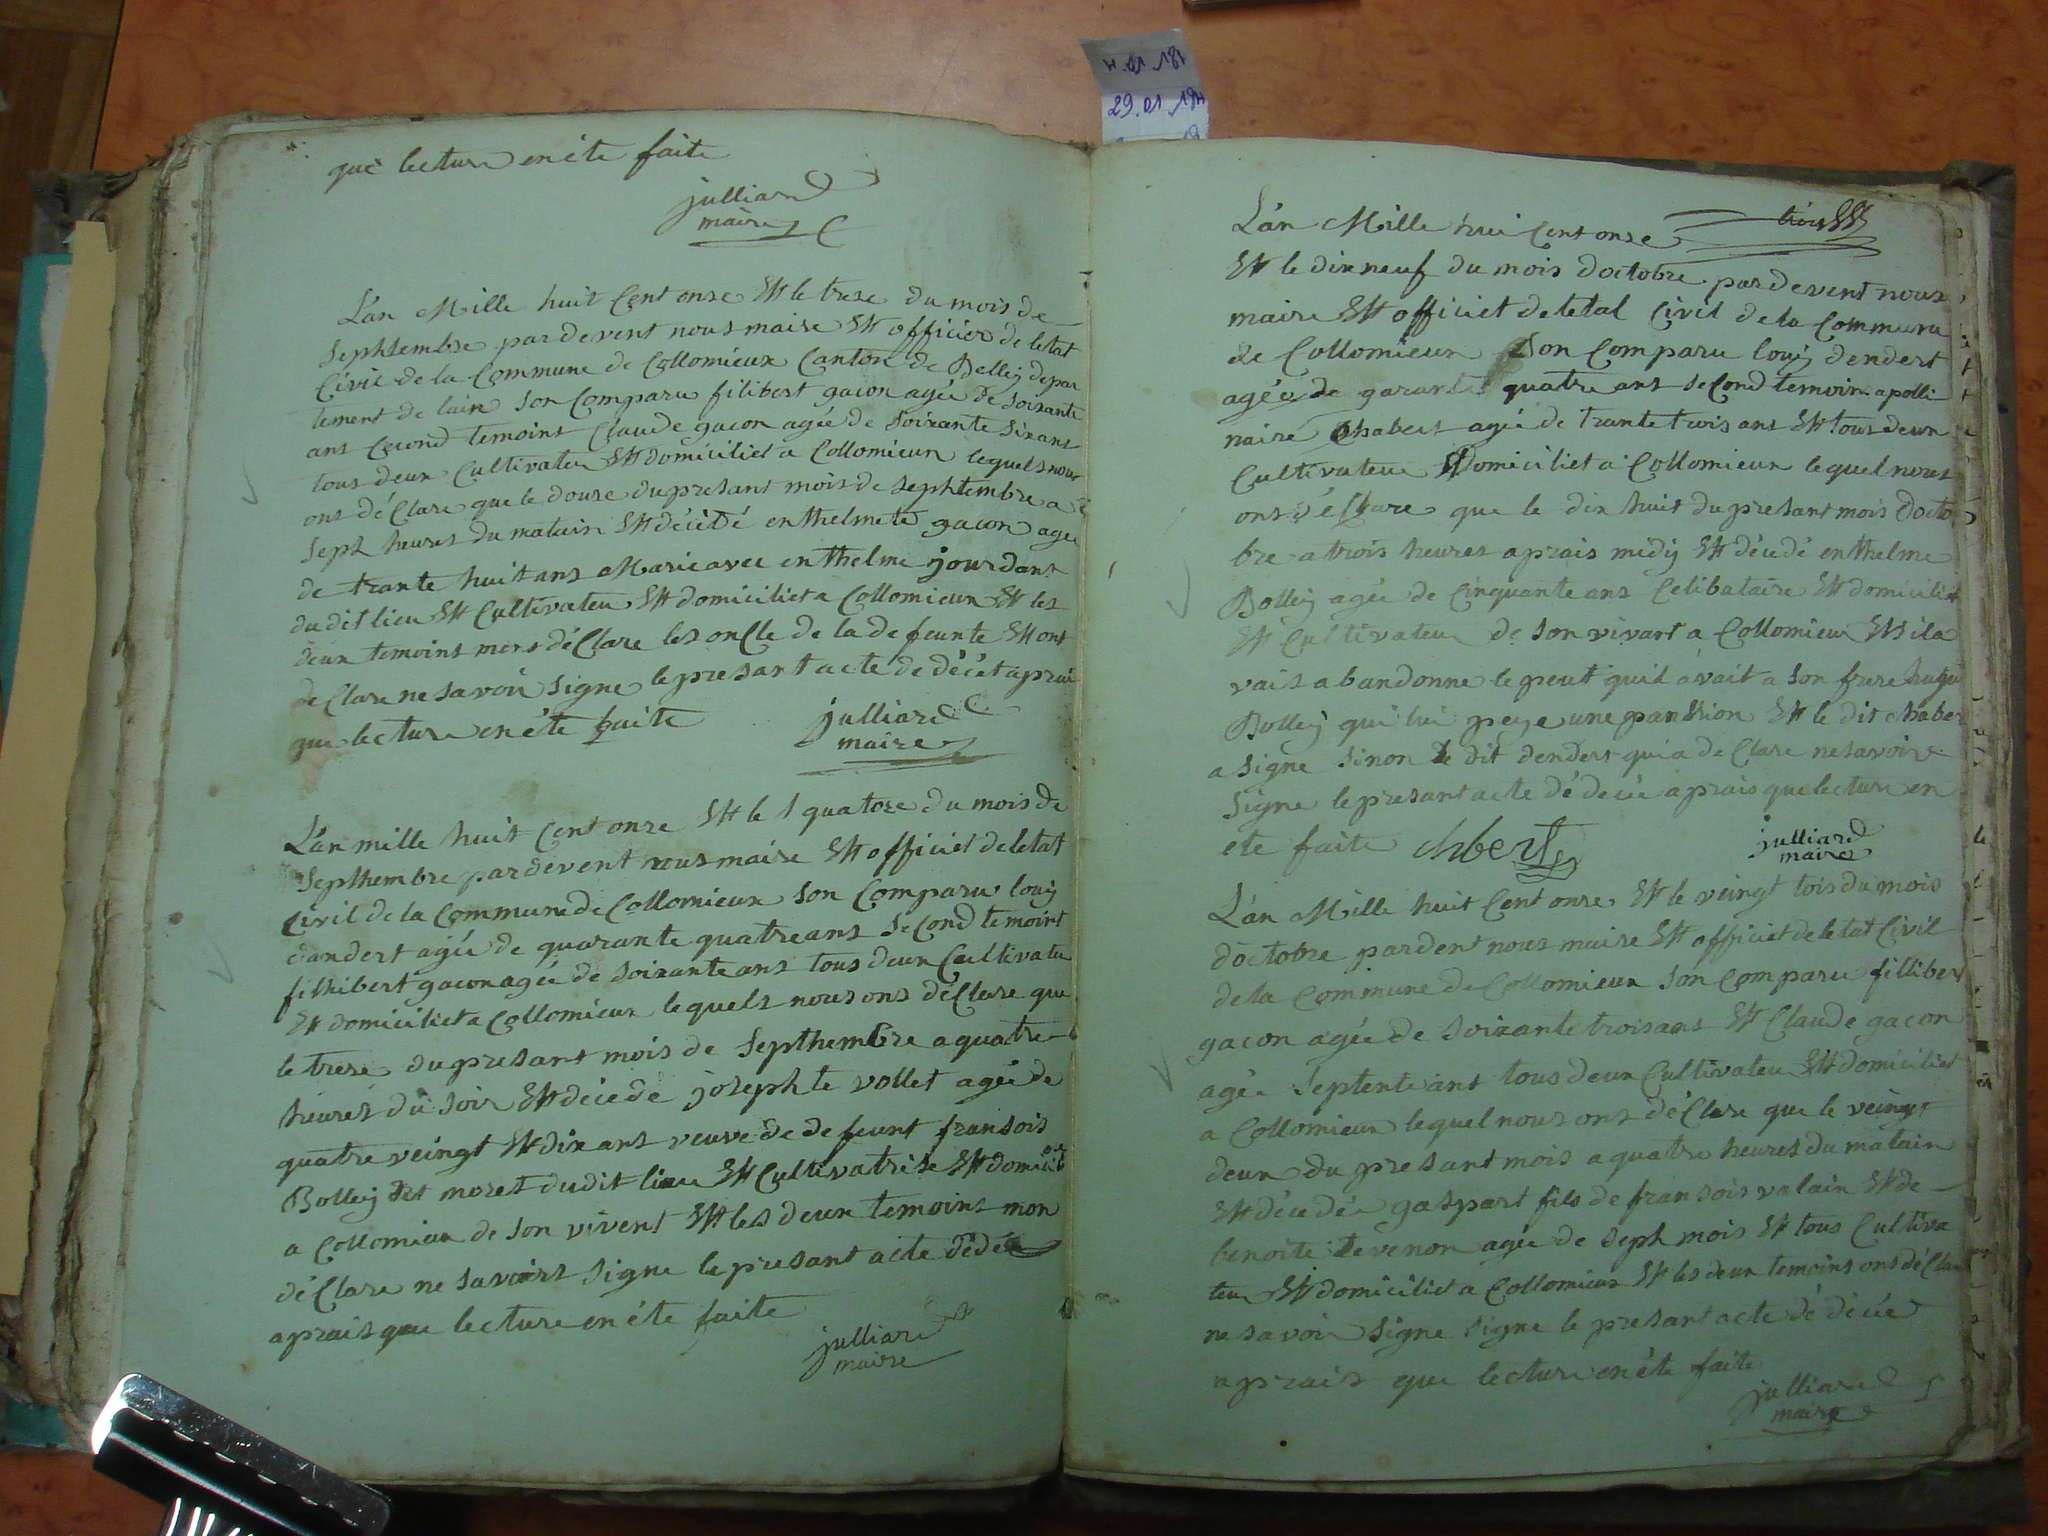 29.01.181
que lecture en éte faite
julliard
maire
L'an Mille huit Cent onze Ett le treze du mois de
Sephtembre par devent nous maire Ett officier de letat
Civil de la Commune de Collomieux Canton de Belley depar
tement de lain Son Comparu filibert gacon agée de Soixante
ans Second temoint Claude gacon agée de Soixante Six ans
tous deux Cultivateu Ett domiciliet a Collomieux lequels nous
ons déClare que le douze du presant mois de Sephtembre a
Seph heures du matain Ett décédé enthelmete gacon agée
de trante huit ans Marie avec enthelme jourdant
du dit lieu Ett Cultivateu Ett domiciliet a Collomieux Ett les
deux temoint mons déClare les onCle de la defeunte Ett ont
de Clare ne Savoir Signe le presant acte de décét aprai
que lecture en éte faite
julliard
maire
L'an mille huit Cent onze Ett le quatorze du mois de
Septhembre par devent nous maire Ett officiet de letat
Civil de la Commune de Collomieux Son Comparu louij
dandert agée de quarante quatre ans Se Cond temoint
filhibert gacon agée de Soixante ans tous deux Cultivateu
Ett domiciliet a Collomieux lequels nous ons déClare que
le treze du presant mois de Septhembre a quatre
heures du Soir Ett décéde josephte vollet agée de
quatre veingt Ett dix ans veuve de defeunt fransois
Bolley det moret dudit lieu Ett Cultivatrise Ett domicili
a Collomieux de Son vivent Ett les deux temoint mon
déClare ne Savoirs Signe le presant acte dédée
aprais que lecture en éte faite
julliard
maire
L'an Mille hui Cent onze trois
Ett le dix neuf du mois doctobre par devent nous
maire Ett officiet de letat Civil de la Commune
de Collomieux Son Comparu louij dendert
agée de garante quatre ans SeCond temoin apolli
naire Chabert agée de trante trois ans Ett tous deux
Cultivateu Domiciliet a Collomieux lequel nous
ons déClare que le dix huit du presant mois Docto
bre a trois heures aprais midij Ett décédé enthelme
Bolley agée de Cinquante ans Celibataire Ett domiciliet
Ett Cultivateu de Son vivart a Collomieu Ett il a
vais abandonne le peut quil avait a Son frere hugu
Bolley qui lui peye une panssion Ett le dit Chaber
a Signe Sinon le dit dendert qui a de Clare ne Savoire
Signe le presant acte dé decée aprais que lecture en
ete faite Chbert
julliard
maire
L'an Mille huit Cent onze Ett le veingt tois du mois
doctobre pardent nous maire Ett officiet de letat Civil
de la Commune de Collomieux Son Comparu filliber
gacon agée de Soixante trois ans Ett Claude gacon
agée Septente ans tous deux Cultivateu Ett domiciliet
a Collomieux lequel nous ons déClare que le veingt
deux du presant mois a quatre heures du matain
Ett décedée gaspart fils de fransois valain Ett de
benoite tevenon agée de Seph mois Ett tous Cultiva
teu Ett domiciliet a Collomieux Ett les deux temoint ons déClar
ne Savoir Signe Signe le presant acte dé décée
aprais que lecture en éte faite
julliard
maire